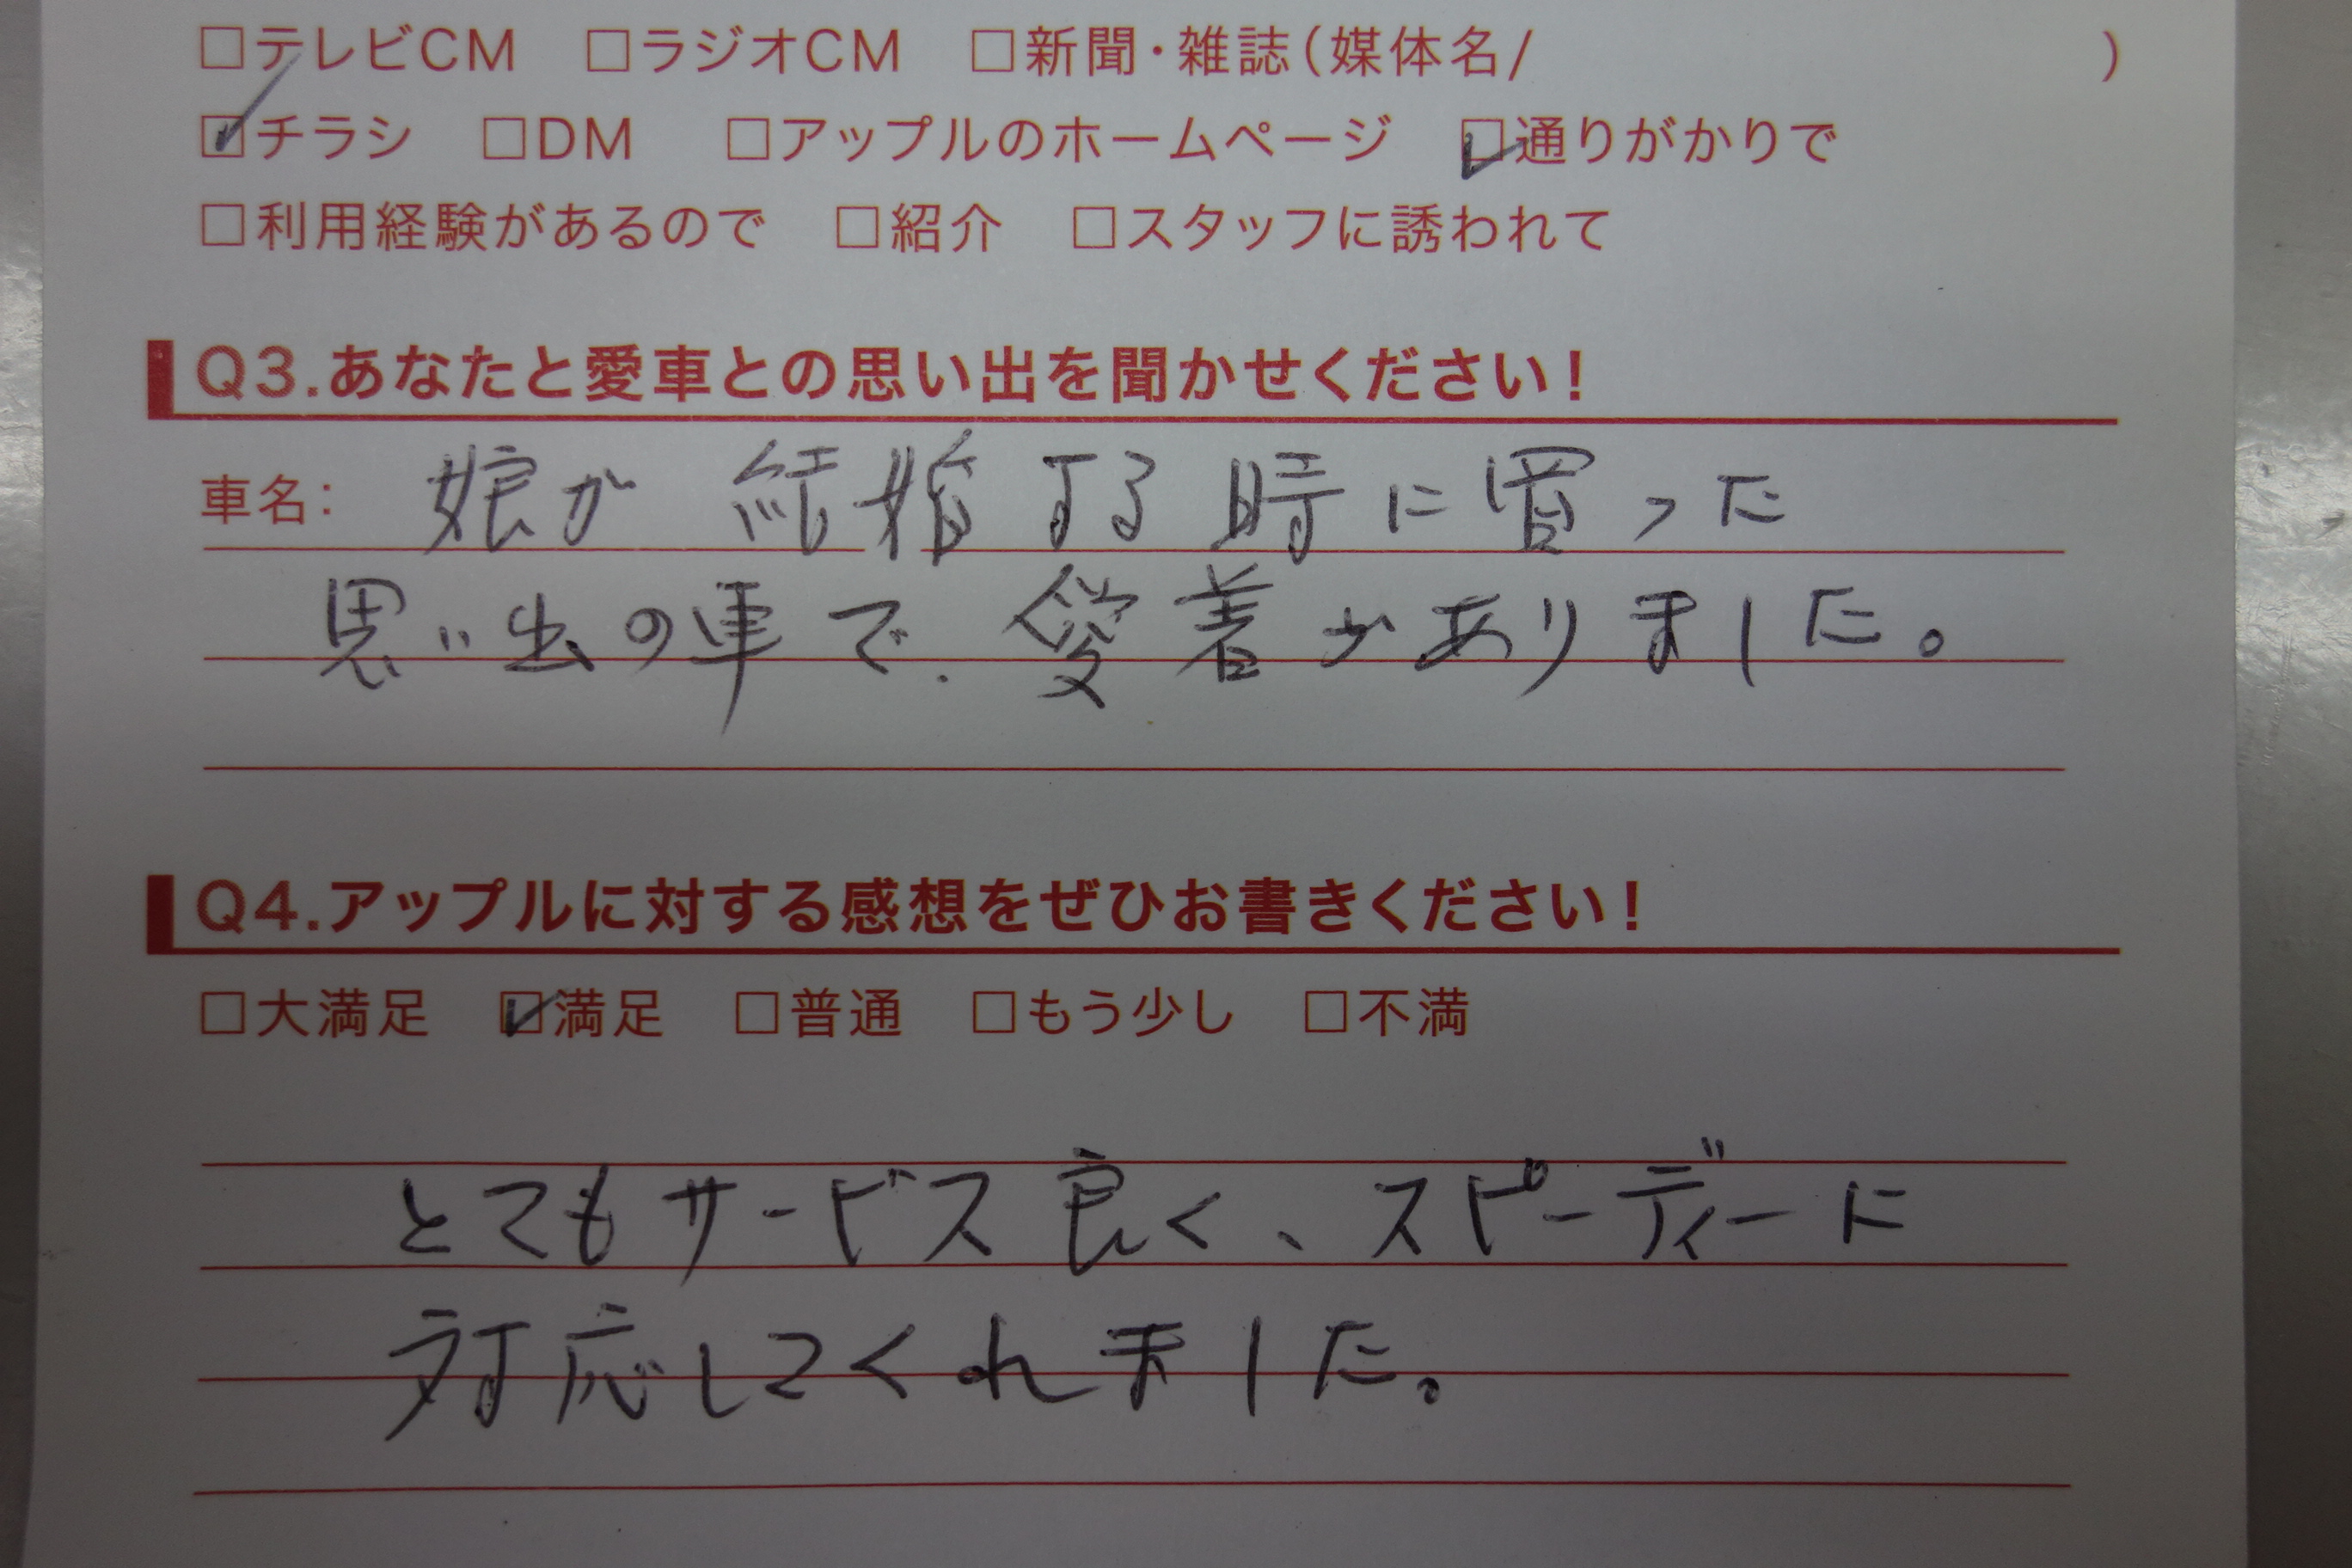 □テレビCM □ラジオCM □新聞・雑誌(媒体名/ )
☑チラシ □DM □アップルのホームページ ☑通りがかりで
□利用経験があるので □紹介 □スタッフに誘われて
Q3.あなたと愛車との思い出を聞かせください!
車名: 娘が結婚する時に買った
思い出の車で、愛着がありました。
Q4.アップルに対する感想をぜひお書きください!
□大満足 ☑満足 □普通 □もう少し □不満
とてもサービス良く、スピーディーに
対応してくれました。